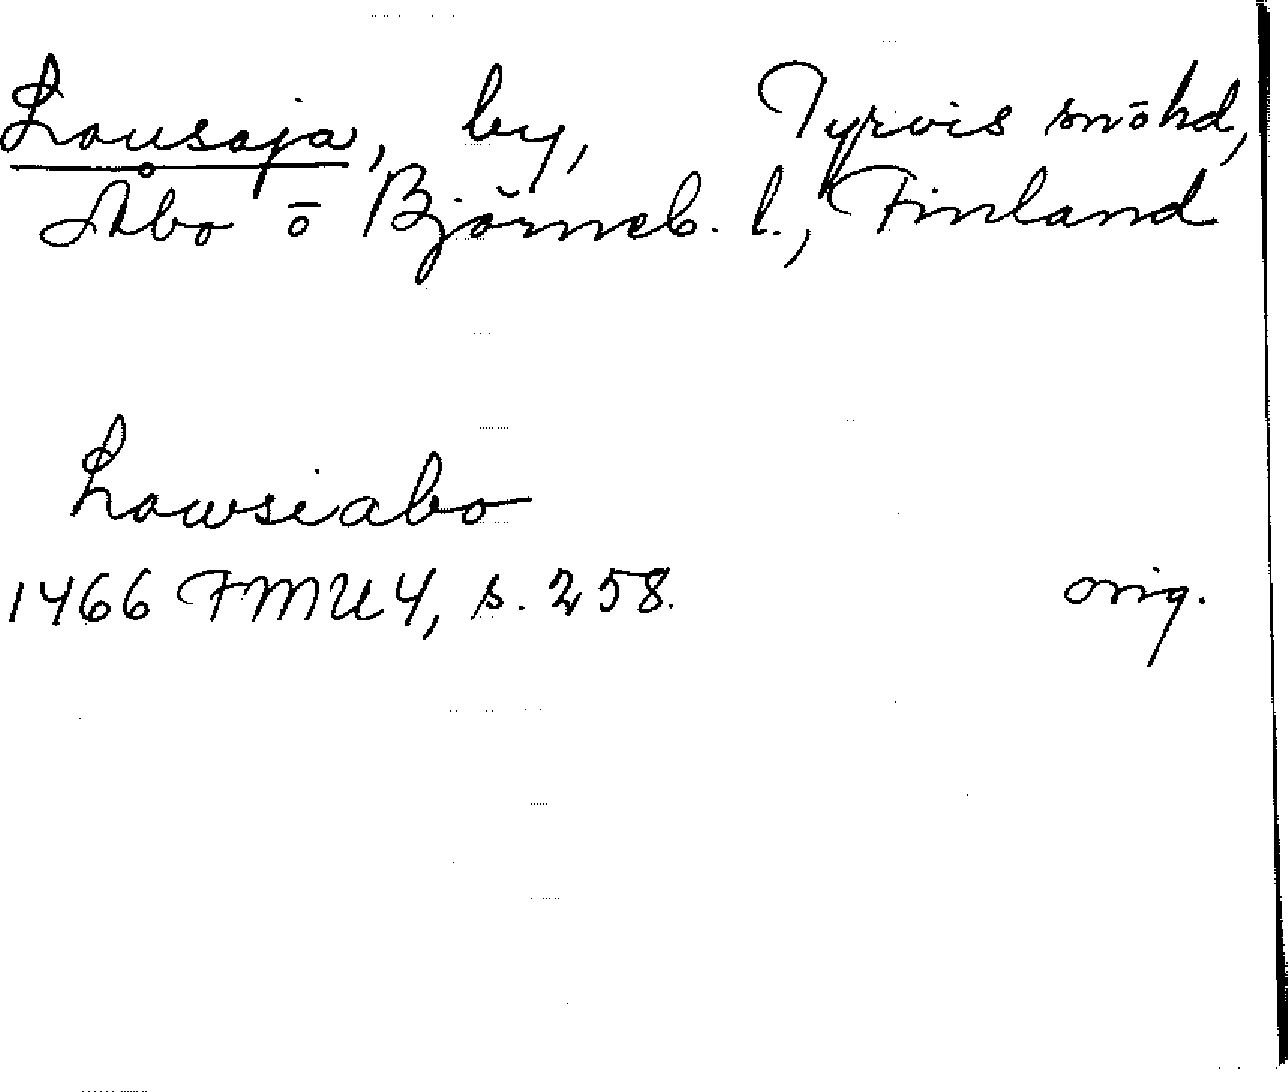 Lousaja, by, Tyrvis snöhd,
Åbo ō Björneb. l., Finland
Lowsiabo
1466 FMU 4, s. 258. orig.